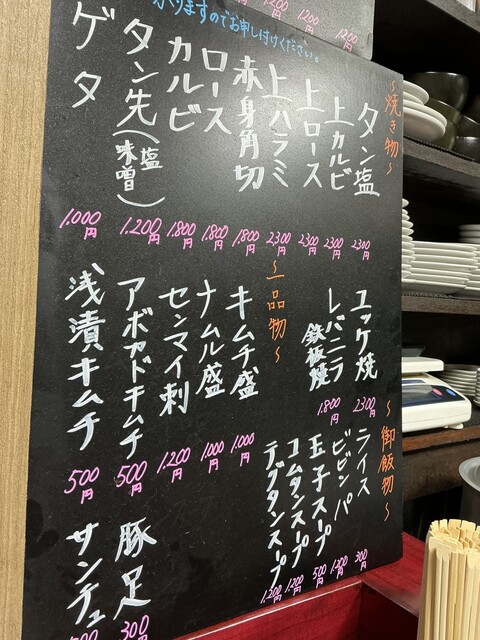 かりますのでお申し付けください。
1200
1200
1200
〜焼き物〜
タン塩 2300円
上カルビ 2300円
上ロース 2300円
上ハラミ 2300円
赤身角切 1,800円
ロース 1,800円
カルビ 1,800円
タン先(塩味噌) 1,200円
ゲタ 1,000円
ユッケ焼 2300円
レバニラ鉄板焼 1,800円
〜一品物〜
キムチ盛 1,000円
ナムル盛 1,000円
センマイ刺 1,200円
アボカドキムチ 500円
浅漬キムチ 500円
豚足 300円
サンチュ
〜御飯物〜
ライス 300円
ビビンバ 1,200円
玉子スープ 500円
コムタンスープ 1,200円
テグタンスープ 1,200円